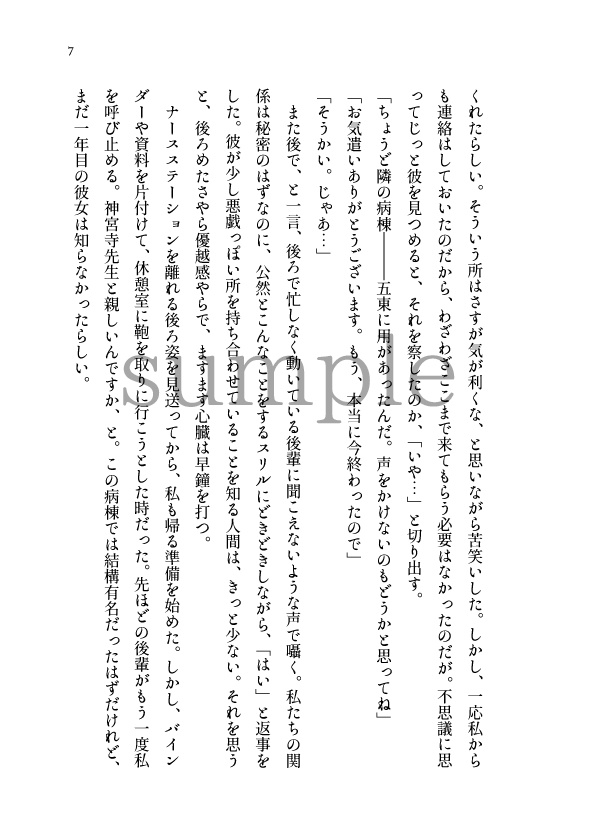 7
くれたらしい。そういう所はさすが気が利くな、と思いながら苦笑いした。しかし、一応私から
も連絡はしておいたのだから、わざわざここまで来てもらう必要はなかったのだが。不思議に思
ってじっと彼を見つめると、それを察したのか、「いや…」と切り出す。
「ちょうど隣の病棟――五東に用があったんだ。声をかけないのもどうかと思ってね」
「お気遣いありがとうございます。もう、本当に今終わったので」
「そうかい。じゃあ…」
また後で、と一言、後ろで忙しなく動いている後輩に聞こえないような声で囁く。私たちの関
係は秘密のはずなのに、公然とこんなことをするスリルにどきどきしながら、「はい」と返事を
した。彼が少し悪戯っぽい所を持ち合わせていることを知る人間は、きっと少ない。それを思う
と、後ろめたさやら優越感やらで、ますます心臓は早鐘を打つ。
ナースステーションを離れる後ろ姿を見送ってから、私も帰る準備を始めた。しかし、バイン
ダーや資料を片付けて、休憩室に鞄を取りに行こうとした時だった。先ほどの後輩がもう一度私
を呼び止める。神宮寺先生と親しいんですか、と。この病棟では結構有名だったはずだけれど、
まだ一年目の彼女は知らなかったらしい。
sumple